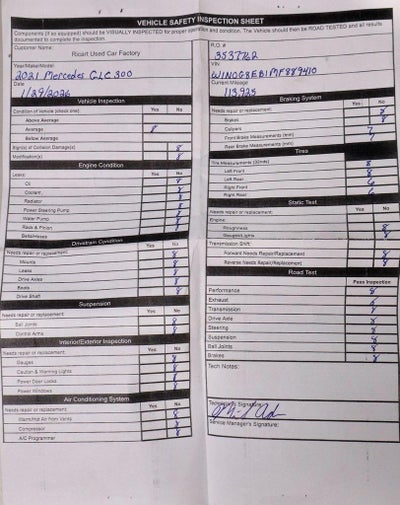 VEHICLE SAFETY INSPECTION SHEET
Components (if so equipped) should be VISUALLY INSPECTED for proper operation and condition. The Vehicle should then be ROAD TESTED and all results
documented to complete the inspection.
Customer Name:
Ricart Used Car Factory
Year/Make/Model
2021 Mercedes GLC 300
Date
1/29/2026
Vehicle Inspection
Condition of vehicle (check one) Yes No
Above Average
Average
Below Average
Sign(s) of Collision Damage(s)
Modification(s)
Engine Condition
Leaks: Yes No
Oil
Coolant
Radiator
Power Steering Pump
Water Pump
Rack & Pinion
Belts/Hoses
Drivetrain Condition
Needs repair or replacement: Yes No
Mounts
Leaks
Drive Axles
Boots
Drive Shaft
Suspension
Needs repair or replacement: Yes No
Ball Joints
Control Arms
Interior/Exterior Inspection
Needs repair or replacement: Yes No
Gauges
Caution & Warning Lights
Power Door Locks
Power Windows
Air Conditioning System
Needs repair or replacement: Yes No
Warm/Hot Air from Vents
Compressor
A/C Programmer
R.O. #
3537762
VIN
W1N0G8EB1MF889410
Current Mileage
113,925
Braking System
Needs repair or replacement: Yes No
Brakes
Calipers
Front Brake Measurements (mm) 7
Rear Brake Measurements (mm) 7
Tires
Tire Measurements (32nds)
Left Front 8
Left Rear 8
Right Front 6
Right Rear 6
Static Test
Needs repair or replacement: Yes No
Engine:
Roughness
Gauges/Lights
Transmission Shift:
Forward Needs Repair/Replacement
Reverse Needs Repair/Replacement
Road Test
Pass Inspection
Performance
Exhaust
Transmission
Drive Axle
Steering
Suspension
Ball Joints
Brakes
Tech Notes:
Technician's Signature:
Service Manager's Signature: